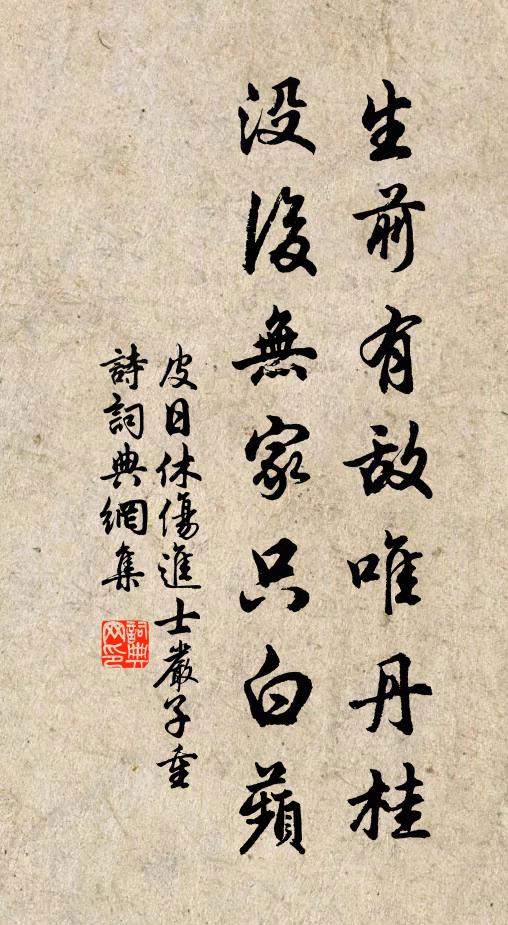 生前有敌唯丹桂
没後無家只白蘋
皮日休傷進士嚴子重
詩詞典網集
詞典网印